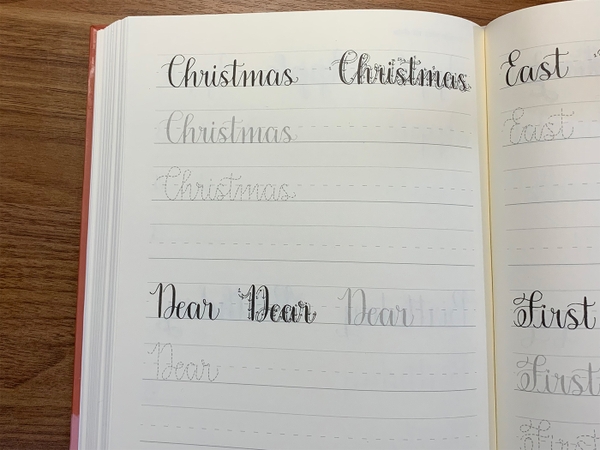 Christmas Christmas
Christmas
Christmas
Dear Dear Dear
Dear
East
East
First
First
First